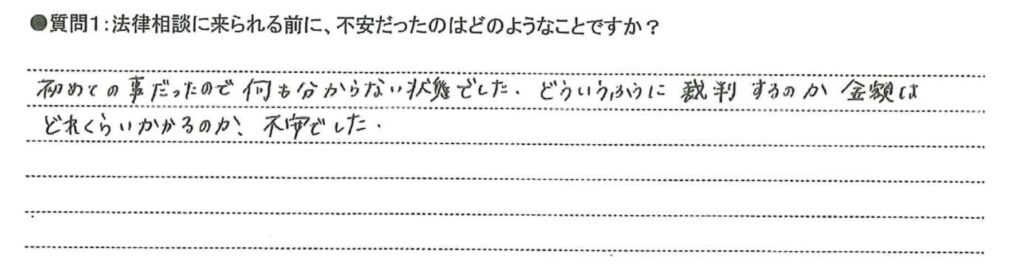 ●質問1:法律相談に来られる前に、不安だったのはどのようなことですか?
初めての事だったので何も分からない状態でした.どういうふうに裁判するのか金額は
どれくらいかかるのか、不安でした.